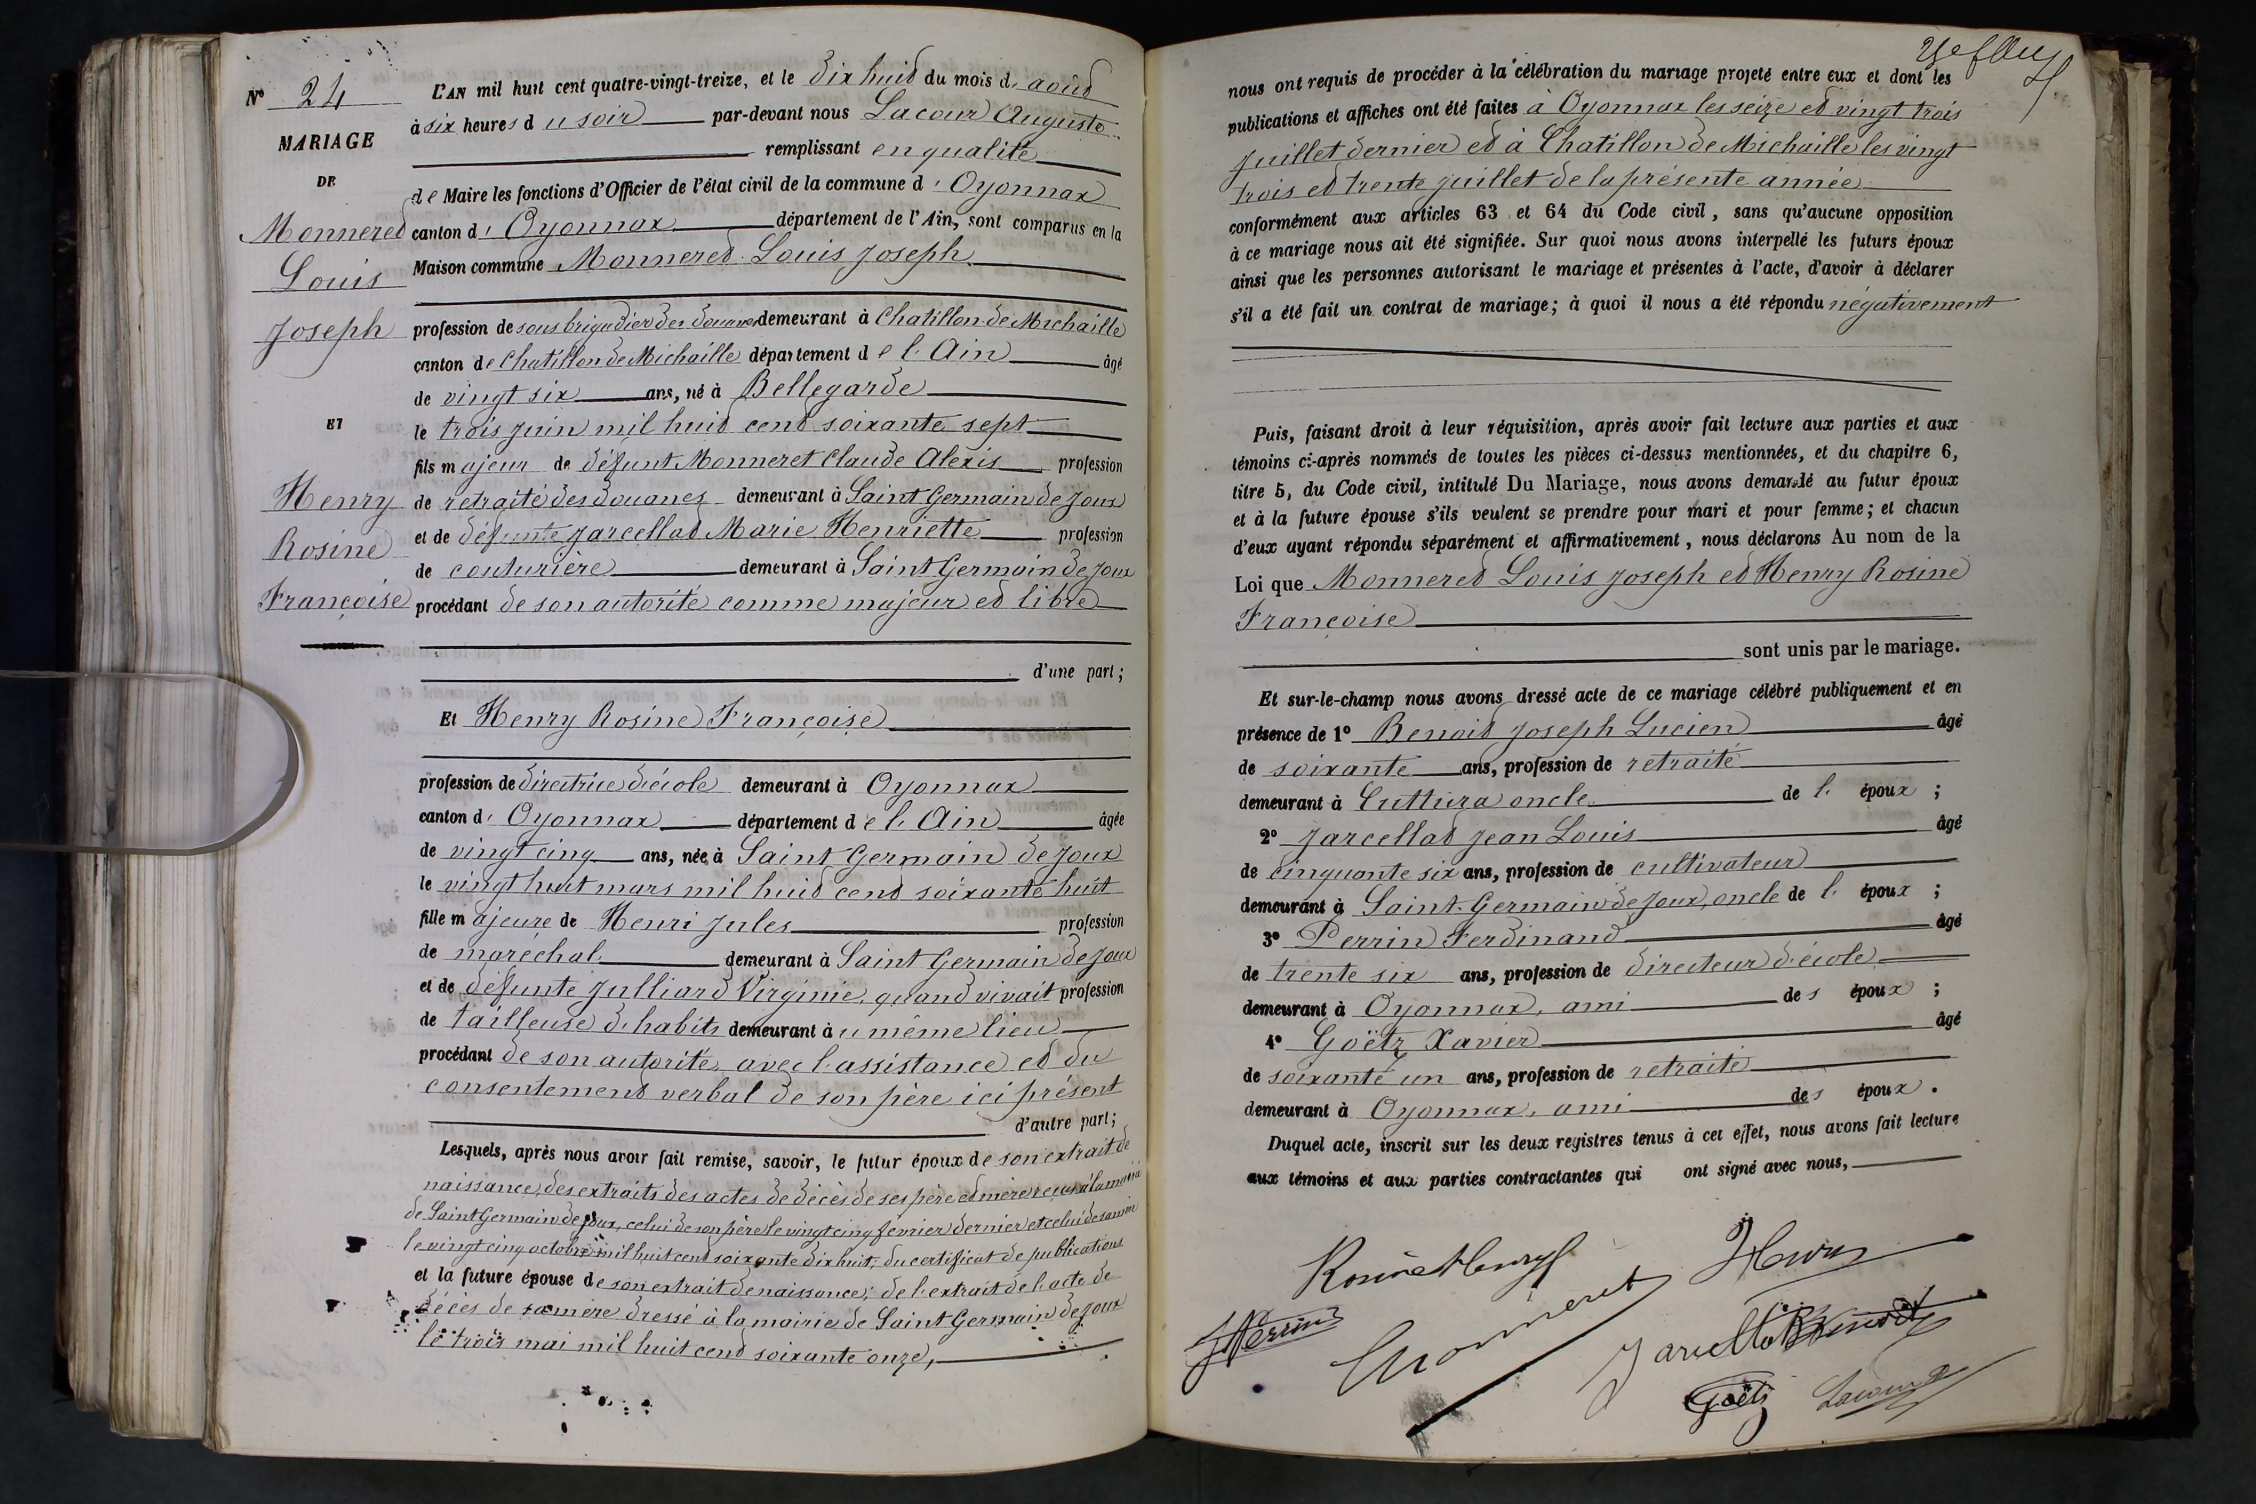 N° 24
MARIAGE
DE
Monneret
Louis
Joseph
ET
Henry
Rosine
Françoise
L'AN mil huit cent quatre-vingt-treize, et le dix huit du mois d' août
à six heures du soir par-devant nous Lacour Auguste
remplissant en qualité
de Maire les fonctions d'Officier de l'état civil de la commune d'Oyonnax
canton d'Oyonnax département de l'Ain, sont comparus en la
Maison commune Monneret Louis Joseph
profession de sous brigadier des douanes demeurant à Chatillon de Michaille
canton de Chatillon de Michaille département de l'Ain âgé
de vingt six ans, né à Bellegarde
le trois juin mil huit cent soixante sept
fils majeur de défunt Monneret Claude Alexis profession
de retraité des douanes demeurant à Saint Germain de Joux
et de défunte Jarcellat Marie Henriette profession
de couturière demeurant à Saint Germain de Joux
procédant de son autorité comme majeur et libre
d'une part;
Et Henry Rosine Françoise
profession de directrice d'école demeurant à Oyonnax
canton d'Oyonnax département de l'Ain âgée
de vingt cinq ans, née à Saint Germain de Joux
le vingt huit mars mil huit cent soixante huit
fille majeure de Henri Jules profession
de maréchal demeurant à Saint Germain de Joux
et de défunte Julliard Virginie, quand vivait profession
de tailleuse d'habits demeurant au même lieu
procédant de son autorité, avec l'assistance et du
consentement verbal de son père ici présent
d'autre part;
Lesquels, après nous avoir fait remise, savoir, le futur époux de son extrait de
naissance, des extraits des actes de décès de ses père et mère reçus à la mairie
de Saint Germain de Joux, celui de son père le vingt cinq février dernier et celui de sa mère
le vingt cinq octobre mil huit cent soixante dix huit; du certificat de publications
et la future épouse de son extrait de naissance; de l'extrait de l'acte de
décès de sa mère dressé à la mairie de Saint Germain de Joux
le trois mai mil huit cent soixante onze,
nous ont requis de procéder à la célébration du mariage projeté entre eux et dont les
publications et affiches ont été faites à Oyonnax les seize et vingt trois
Juillet dernier et à Chatillon de Michaille les vingt
trois et trente juillet de la présente année
conformément aux articles 63 et 64 du Code civil, sans qu'aucune opposition
à ce mariage nous ait été signifiée. Sur quoi nous avons interpellé les futurs époux
ainsi que les personnes autorisant le mariage et présentes à l'acte, d'avoir à déclarer
s'il a été fait un contrat de mariage; à quoi il nous a été répondu négativement
Puis, faisant droit à leur réquisition, après avoir fait lecture aux parties et aux
témoins ci-après nommés de toutes les pièces ci-dessus mentionnées, et du chapitre 6,
titre 5, du Code civil, intitulé Du Mariage, nous avons demandé au futur époux
et à la future épouse s'ils veulent se prendre pour mari et pour femme; et chacun
d'eux ayant répondu séparément et affirmativement, nous déclarons Au nom de la
Loi que Monneret Louis Joseph et Henry Rosine
Françoise
sont unis par le mariage.
Et sur-le-champ nous avons dressé acte de ce mariage célébré publiquement et en
présence de 1° Benoit Joseph Lucien âgé
de soixante ans, profession de retraité
demeurant à Cuttura oncle de l' époux;
2° Jarcellat Jean Louis âgé
de cinquante six ans, profession de cultivateur
demeurant à Saint-Germain de Joux, oncle de l' époux;
3° Perrin Ferdinand âgé
de trente six ans, profession de directeur d'école
demeurant à Oyonnax, ami des époux;
4° Goëtz Xavier âgé
de soixante un ans, profession de retraité
demeurant à Oyonnax, ami des époux.
Duquel acte, inscrit sur les deux registres tenus à cet effet, nous avons fait lecture
aux témoins et aux parties contractantes qui ont signé avec nous,
Rosine Henry
Henri
Perrin
Monneret
Jarcellat
Benoit
Goëtz
Lacour